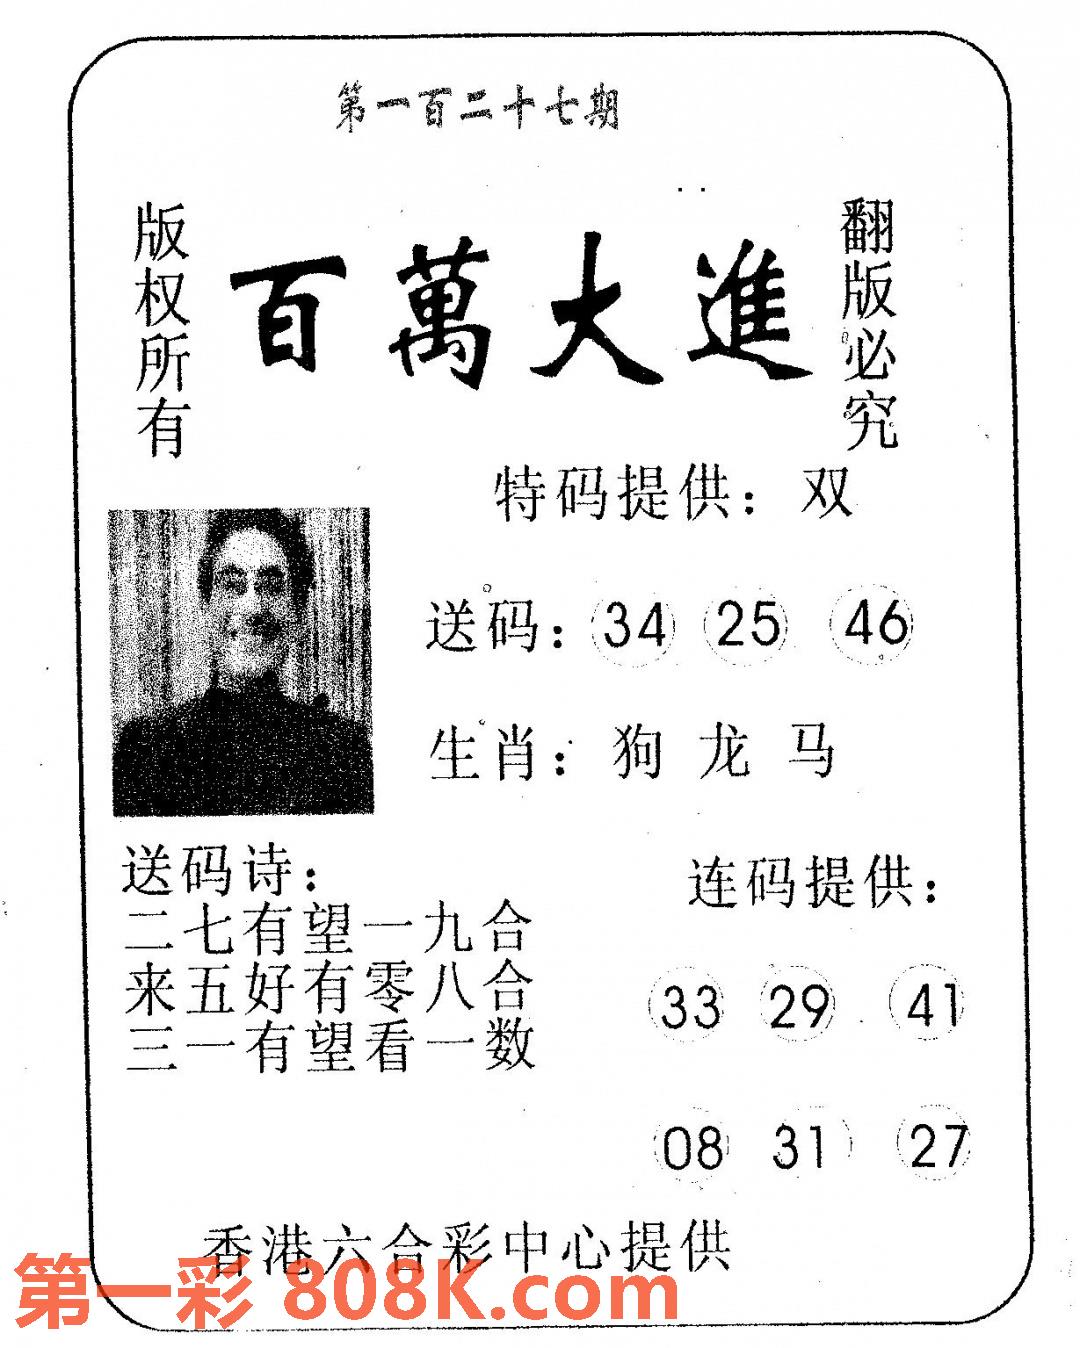 第一百二十七期
版权所有
百萬大進
翻版必究
特码提供：双
送码：34 25 46
生肖：狗 龙 马
送码诗：
二七有望一九合
来五好有零八合
三一有望看一数
连码提供：
33 29 41
08 31 27
香港六合彩中心提供
第一彩 808K.com